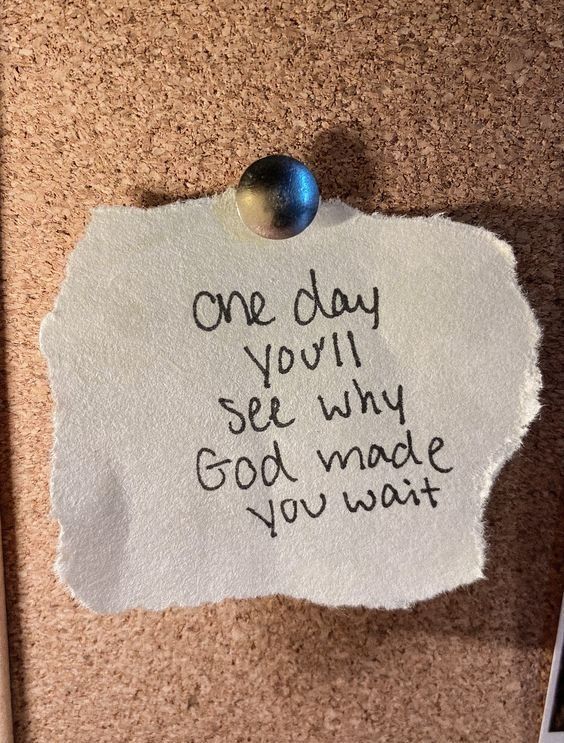 one day
you'll
see why
God made
you wait